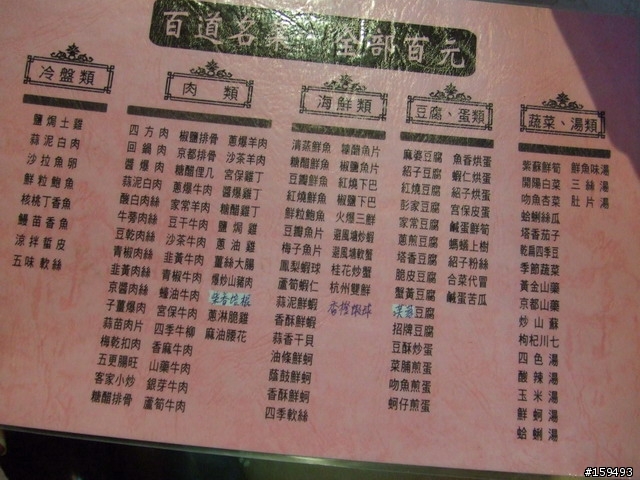 百道名菜 全部百元
冷盤類
鹽焗土雞
蒜泥白肉
沙拉魚卵
鮮粒鮑魚
核桃丁香魚
鰻苗香魚
涼拌蜇皮
五味軟絲
肉 類
四方肉
回鍋肉
醬爆肉
蒜泥白肉
酸白肉絲
牛蒡肉絲
豆乾肉絲
青椒肉絲
韭黃肉絲
京醬肉絲
子薑爆肉
蒜苗肉片
梅乾扣肉
五更腸旺
客家小炒
糖醋排骨
椒鹽排骨
京都排骨
糖醋俚几
蔥爆牛肉
家常羊肉
豆干牛肉
沙茶牛肉
韭黃牛肉
青椒牛肉
蠔油牛肉
宮保牛肉
四季牛柳
香麻牛肉
山藥牛肉
銀芽牛肉
蘆筍牛肉
蔥爆羊肉
沙茶羊肉
宮保雞丁
醬爆雞丁
糖醋雞丁
鹽焗雞
蔥油雞
薑絲大腸
爆炒山豬肉
蔥淋脆雞
麻油腰花
海鮮類
清蒸鮮魚
糖醋鮮魚
豆瓣鮮魚
紅燒鮮魚
鮮鮑鮑魚
豆瓣魚片
梅子魚片
鳳梨蝦球
紅燜蝦仁
蒜泥鮮蝦
香酥鮮蝦
蒜香干貝
油條鮮蚵
蔭鼓鮮蚵
香酥鮮蚵
四季軟絲
糖醋魚片
椒鹽魚片
紅燒下巴
椒鹽下巴
火爆三鮮
避風塘炒蝦
避風塘軟蟹
桂花炒蟹
杭州雙鮮
香橙蝦球
豆腐、蛋類
麻婆豆腐
紹子豆腐
紅燒豆腐
彭家豆腐
家常豆腐
蔥煎豆腐
塔香豆腐
脆皮豆腐
蟹黃豆腐
豆腐
招牌豆腐
豆酥炒蛋
菜脯煎蛋
吻魚煎蛋
蚵仔煎蛋
魚香烘蛋
蝦仁烘蛋
紹子烘蛋
宮保皮蛋
鹹蛋鮮筍
螞蟻上樹
紹子粉絲
合菜代冒
鹹蛋苦瓜
蔬菜、湯類
紫蘇鮮筍
開陽白菜
吻魚杏菜
蛤蜊絲瓜
塔香茄子
乾扁四季豆
季節蔬菜
黃金山藥
京都山藥
炒山蘇
枸杞川七
四色湯
酸辣湯
玉米湯
鮮蚵湯
蛤蜊湯
鮮魚味湯
三絲湯
肚片湯
#159493